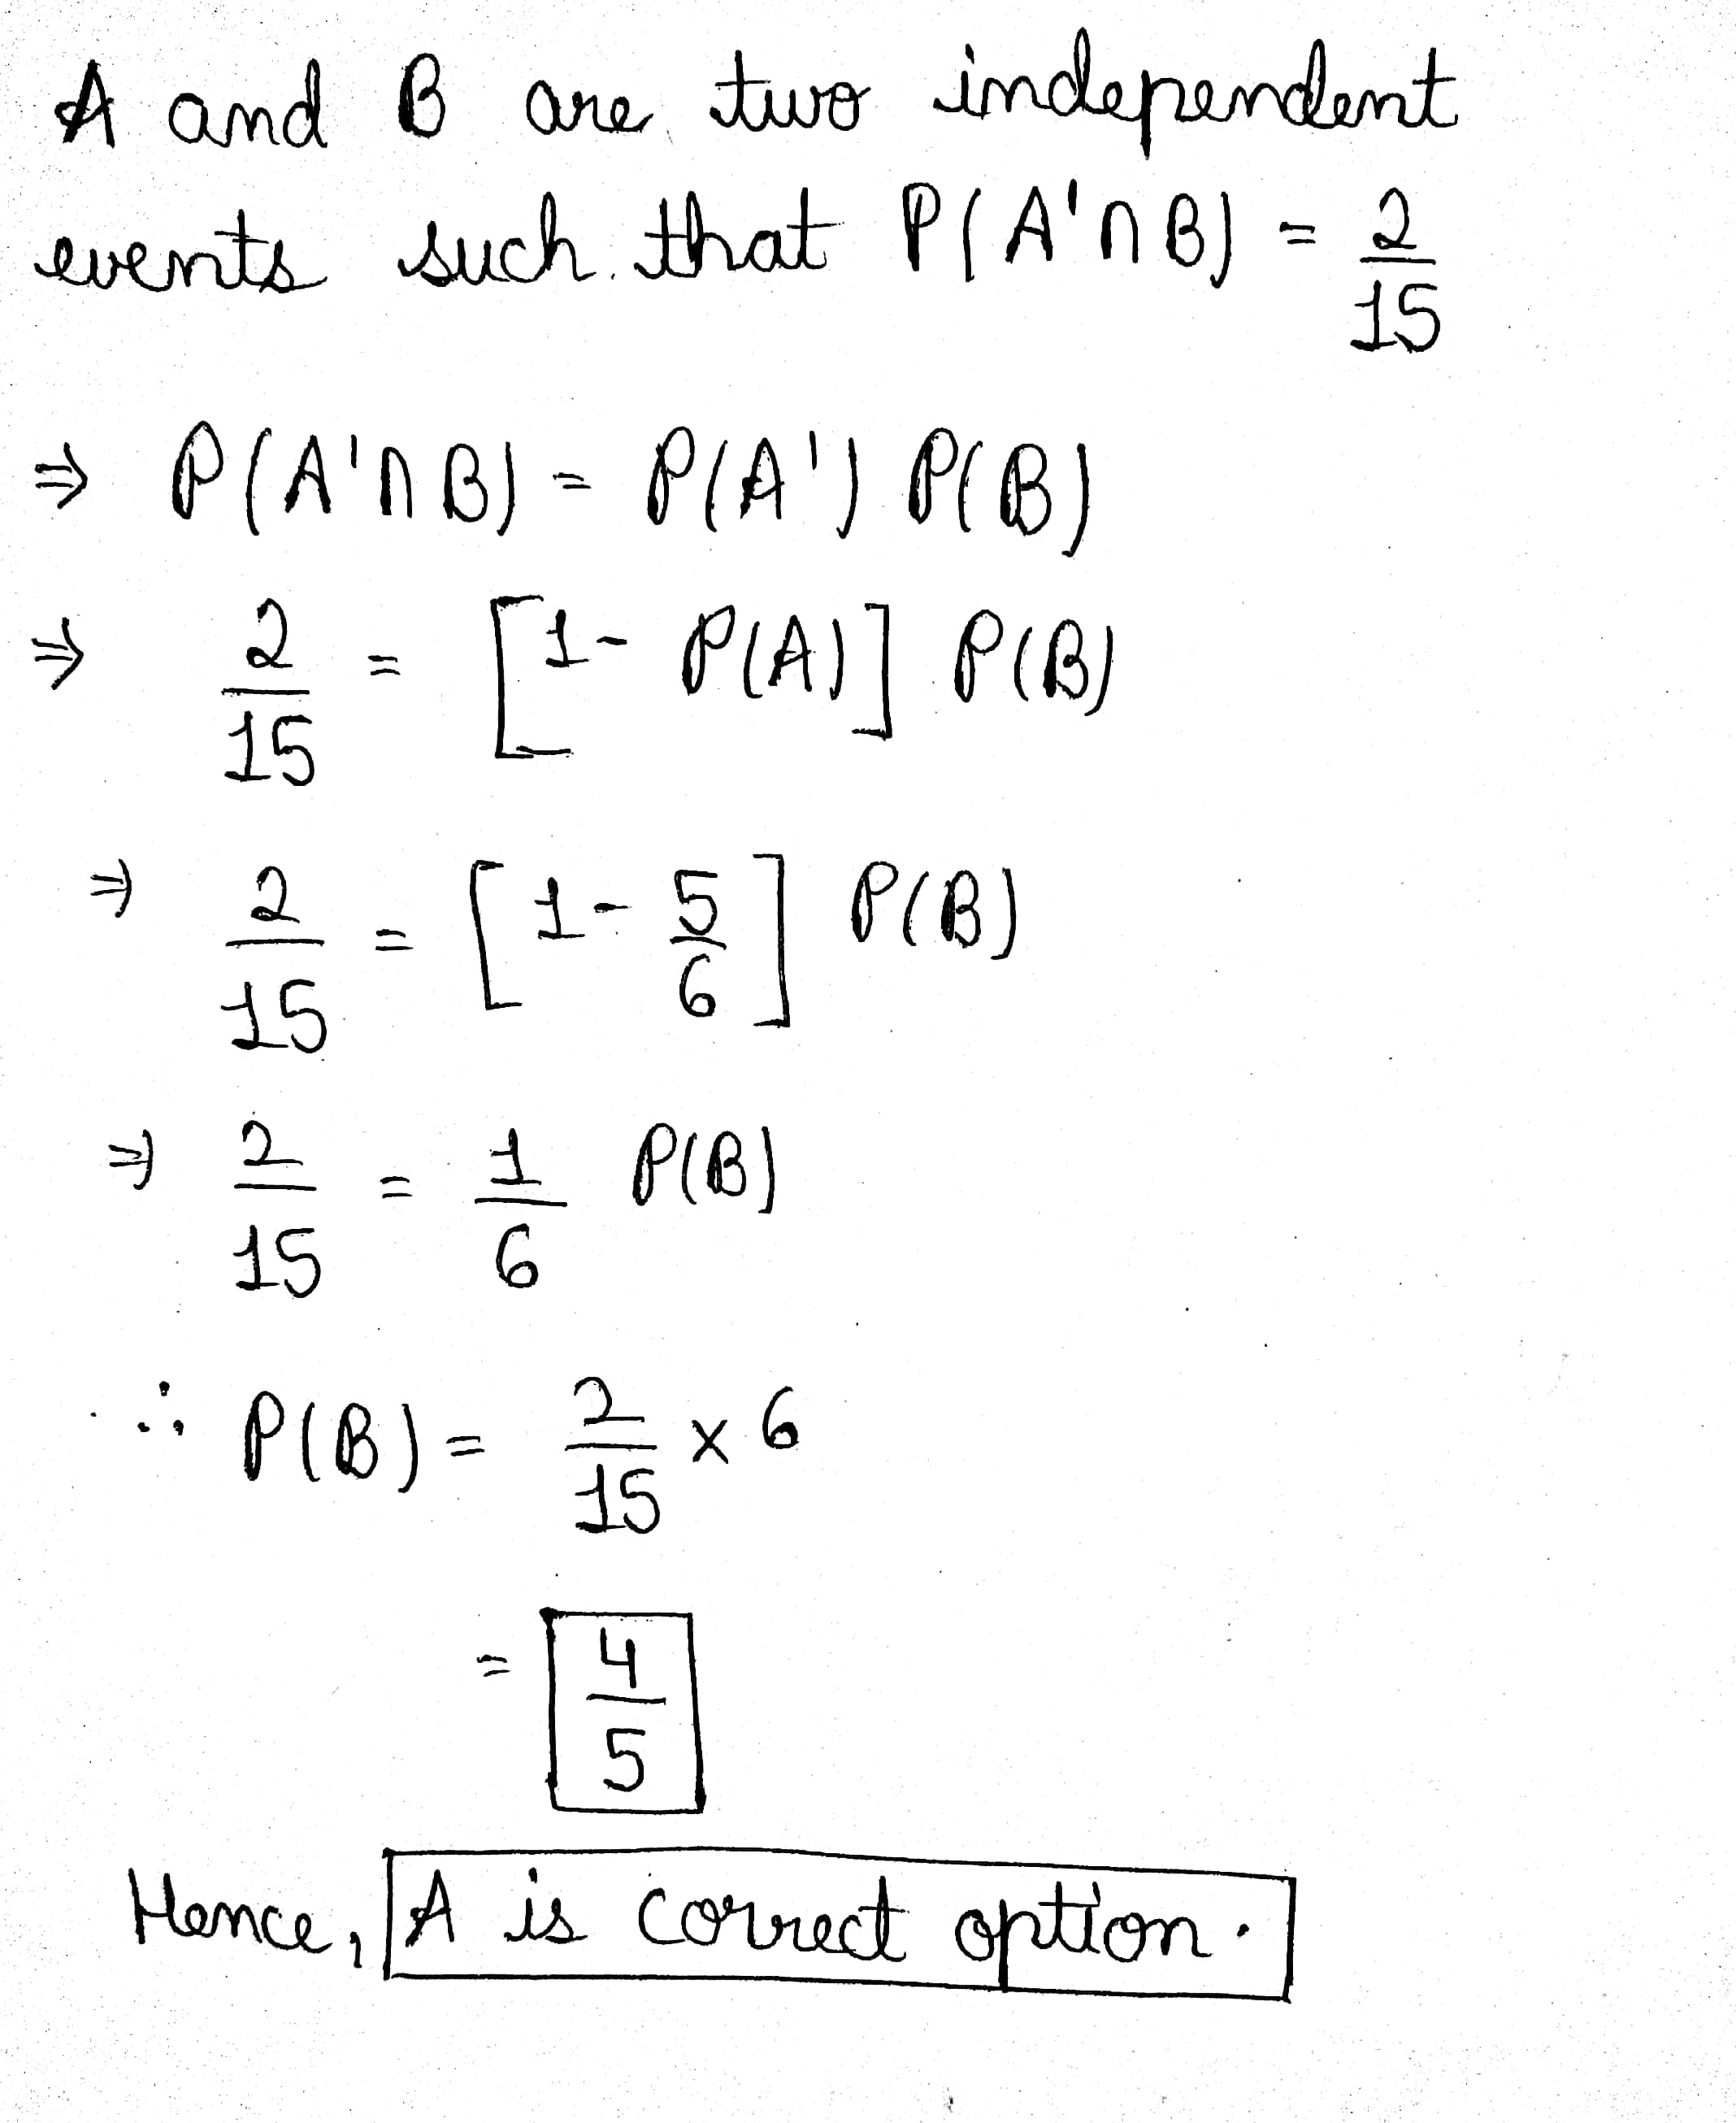 A and B are two independent
events such that P(A'∩B) = 2/15
⇒ P(A'∩B) = P(A') P(B)
⇒ 2/15 = [1 - P(A)] P(B)
⇒ 2/15 = [1 - 5/6] P(B)
⇒ 2/15 = 1/6 P(B)
∴ P(B) = 2/15 × 6
= 4/5
Hence, A is correct option.